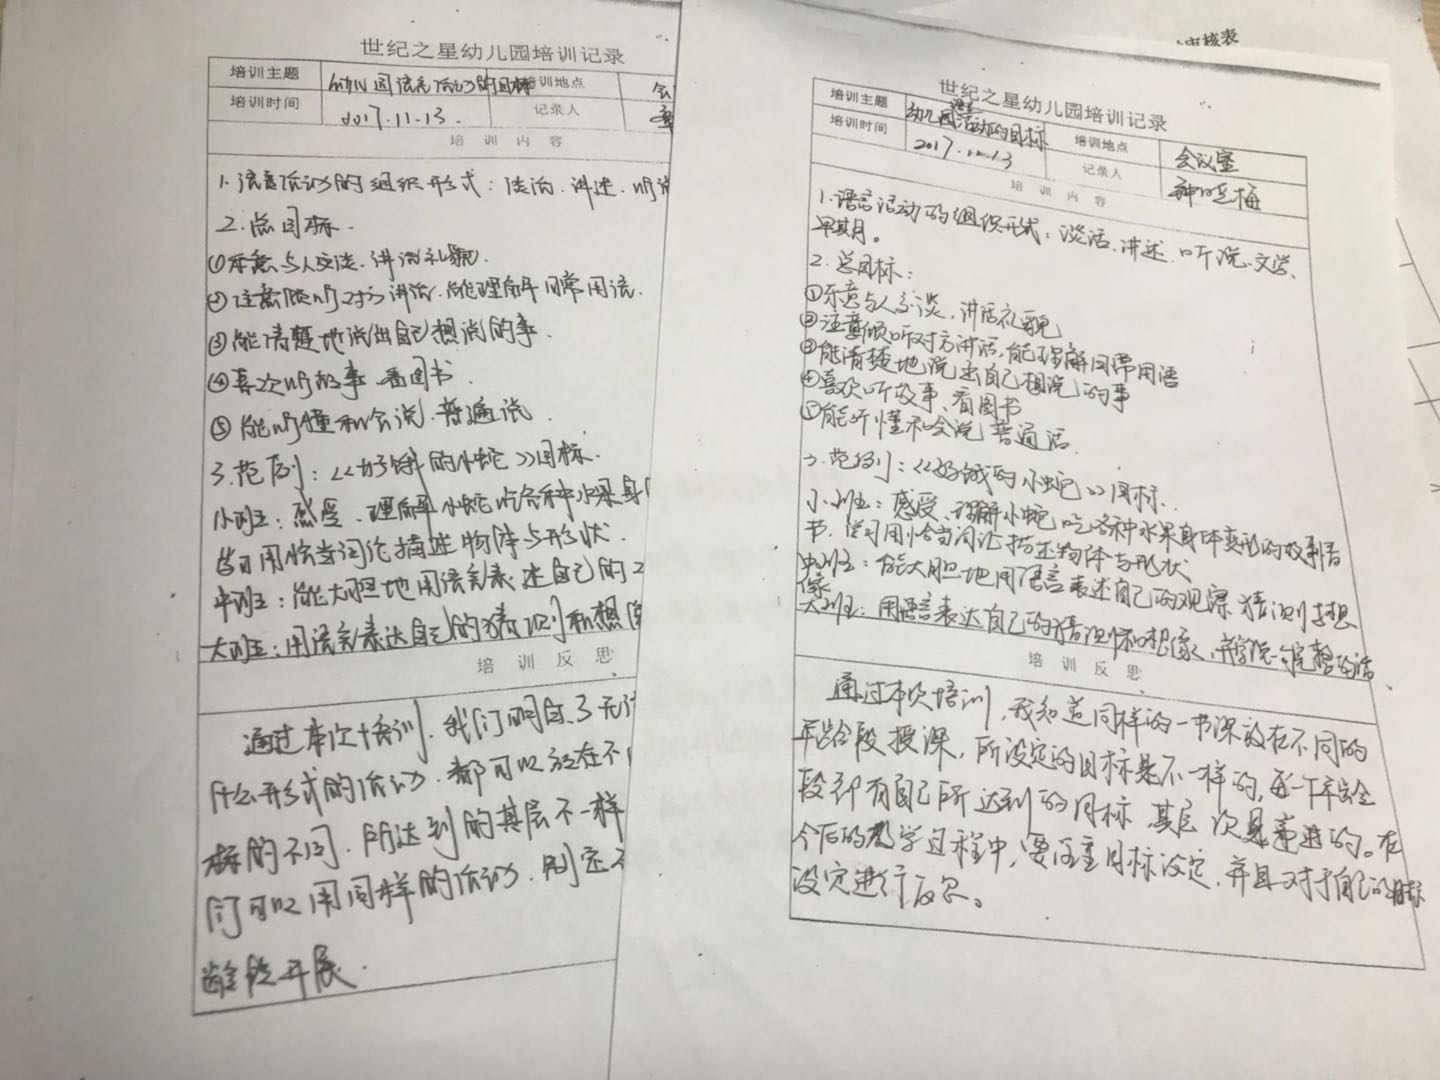 世纪之星幼儿园培训记录
培训主题 幼儿园语言活动的目标 培训地点 会
培训时间 2017.11.13. 记录人
培训内容
1.语言活动的组织形式：谈话.讲述.听说
2.总目标.
①乐意与人交谈.讲话礼貌.
②注意倾听对方讲话.能理解日常用语.
③能清楚地说出自己想说的事.
④喜欢听故事.看图书.
⑤能听懂和会说.普通话.
3.范例：《好饿的小蛇》目标.
小班：感受、理解小蛇吃各种水果身
学习用恰当词汇描述物体与形状.
中班：能大胆地用语言表述自己的
大班：用语言表达自己的猜测和想像
培训反思
通过本次培训.我们明白了无论
什么形式的活动.都可以放在不
标的不同.所达到的其层不一样
们可以用同样的活动.制定不
龄段开展.
审核表
世纪之星幼儿园培训记录
培训主题 幼儿园语言活动的目标 培训地点 会议室
培训时间 2017.11.13 记录人
培训内容
1.语言活动的组织形式：谈话、讲述、听说、文学、
早期。
2.总目标：
①乐意与人交谈，讲话礼貌
②注意倾听对方讲话，能理解日常用语
③能清楚地说出自己想说的事
④喜欢听故事、看图书
⑤能听懂和会说普通话.
3.范例：《好饿的小蛇》目标.
小班：感受、理解小蛇吃各种水果身体变形的故事情
节，学习用恰当词汇描述物体与形状
中班：能大胆地用语言表述自己的观察猜测与想
像
大班：用语言表达自己的猜测和想像，并学说完整的话、
培训反思
通过本次培训，我知道同样的一书课放在不同的
年龄段授课，所设定的目标是不一样的，每一个年龄
段都有自己所达到的目标，其层次是递进的。在
今后的教学过程中，要注重目标设定，并且对于自己的目标
设定进行反思。